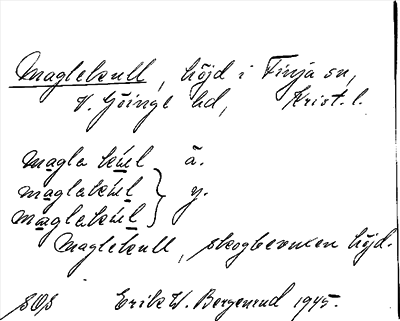 Maglekull, höjd i Finja sn,
V. Göinge hd, Krist. l.
magla kúl ä.
maglakúl
maglakúl } y.
Maglekull, skogbevuxen höjd.
SOS Erik W. Bergsrud 1945.